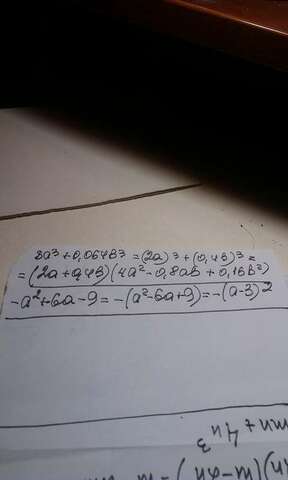 8a³+0,064b³=(2a)³+(0,4b)³=
=(2a+0,4b)(4a²-0,8ab+0,16b²)
-a²+6a-9=-(a²-6a+9)=-(a-3)²